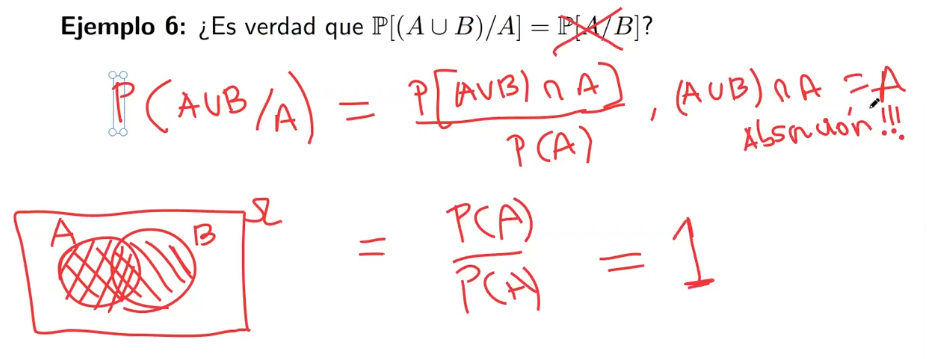 Ejemplo 6: ¿Es verdad que ℙ[(A ∪ B)/A] = ℙ[A/B]?
P(A∪B/A) = P[(A∪B)∩A] / P(A) , (A∪B)∩A = A
Absorción!!!
A B Ω
= P(A) / P(A) = 1